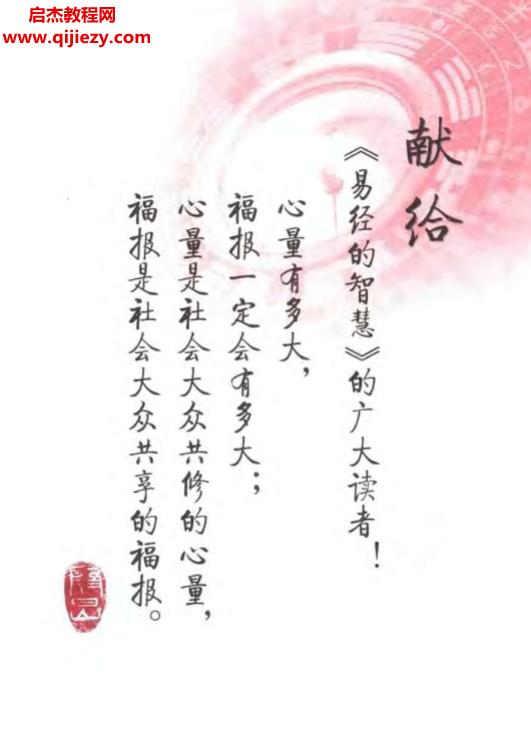 启杰教程网
www.qijiezy.com
献给
《易经的智慧》的广大读者！
心量有多大，
福报一定会有多大；
心量是社会大众共修的心量，
福报是社会大众共享的福报。